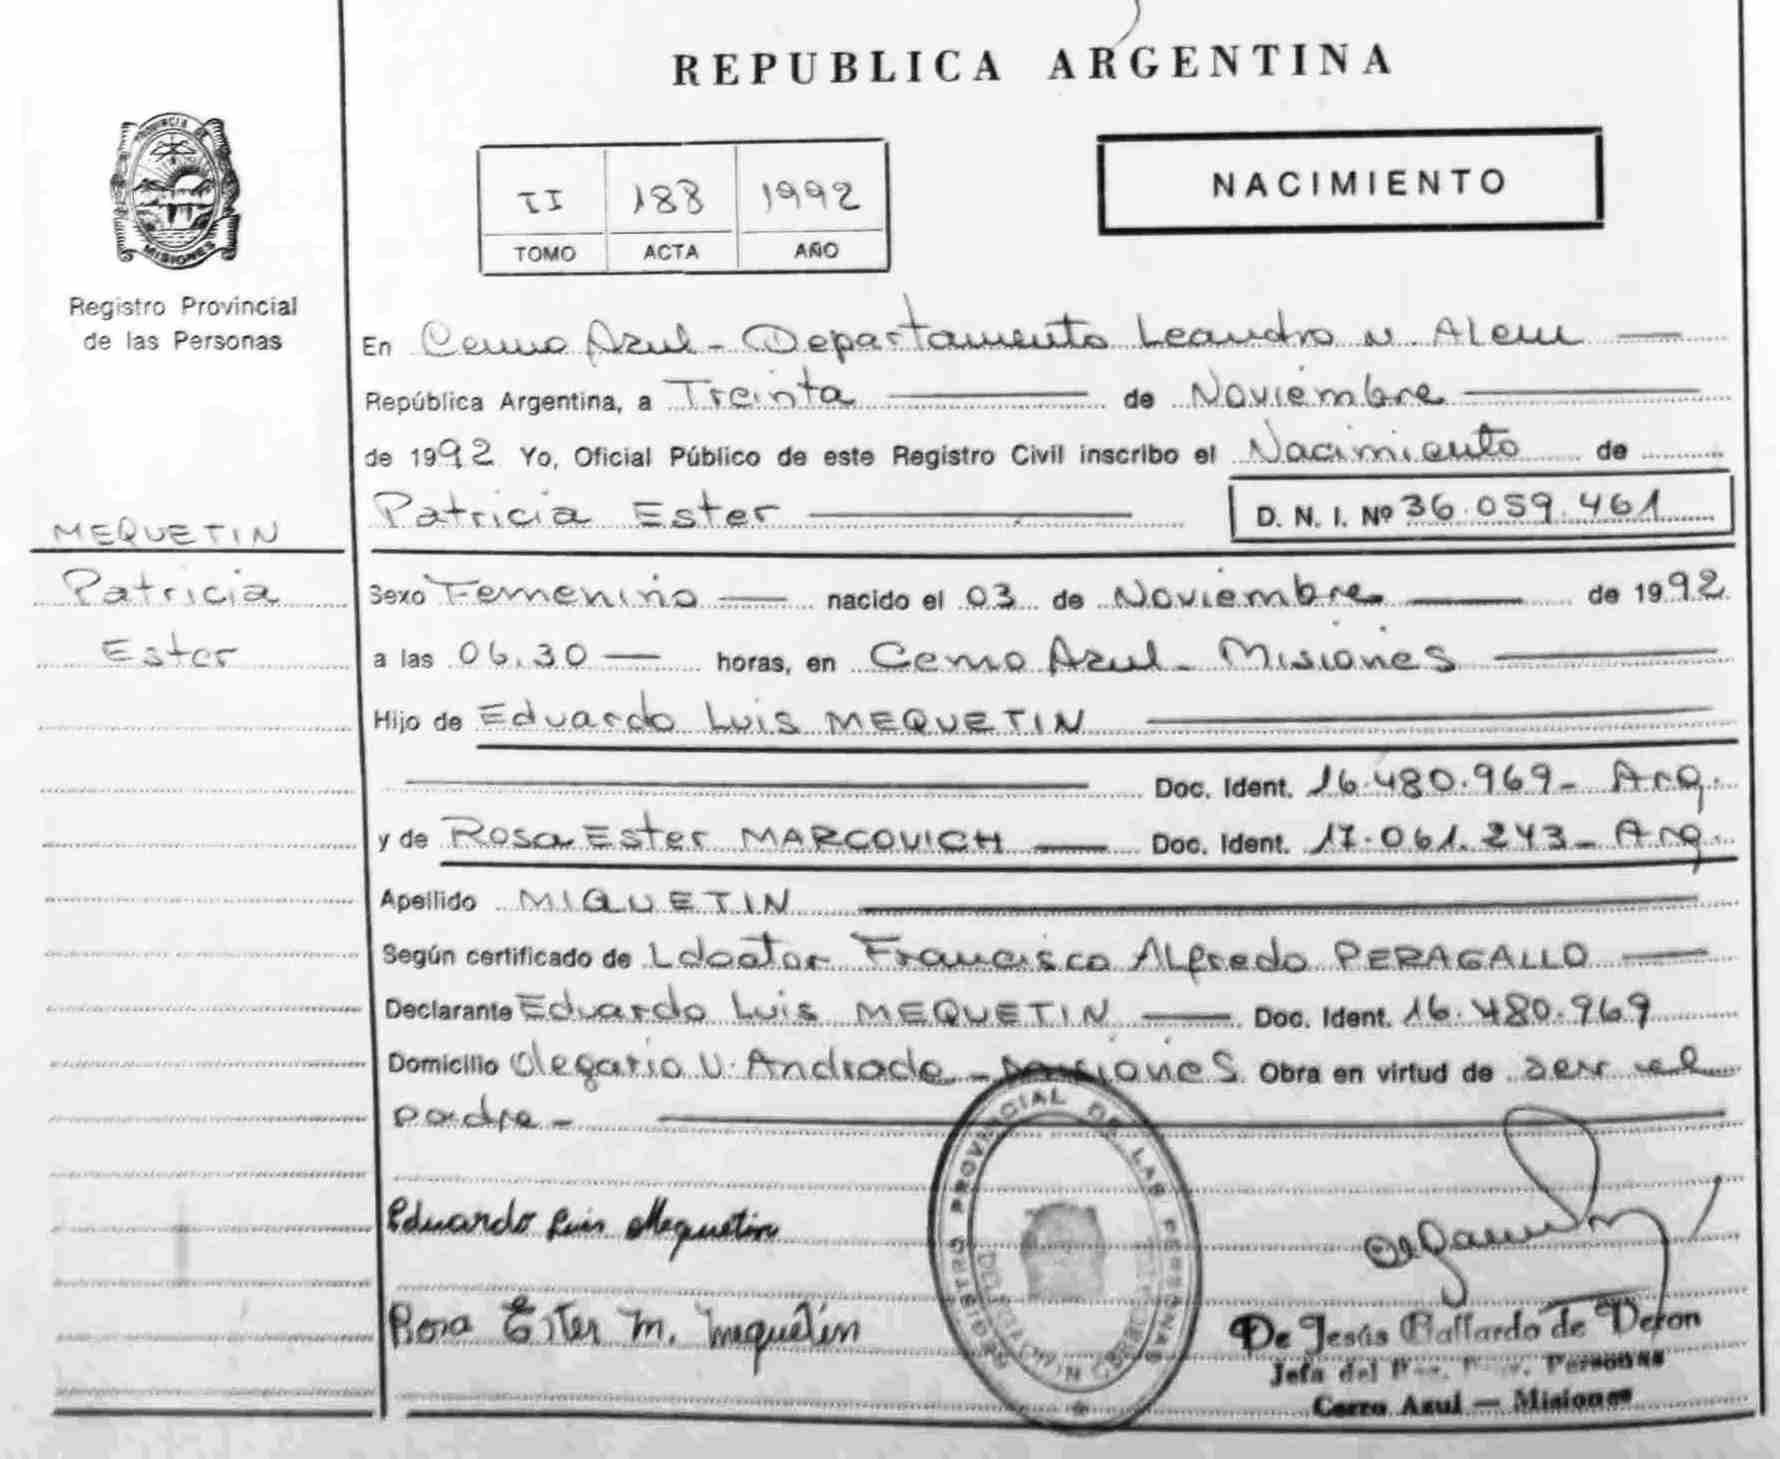 REPUBLICA ARGENTINA
PROVINCIA DE
MISIONES
Registro Provincial
de las Personas
II 188 1992
TOMO ACTA AÑO
NACIMIENTO
En Cerro Azul - Departamento Leandro N. Alem
República Argentina, a Treinta de Noviembre
de 1992 Yo, Oficial Público de este Registro Civil inscribo el Nacimiento de
Patricia Ester D. N. I. Nº 36.059.461
MEQUETIN
Patricia
Ester
Sexo Femenino nacido el 03 de Noviembre de 1992
a las 06.30 horas, en Cerro Azul - Misiones
Hijo de Eduardo Luis MEQUETIN
Doc. Ident. 16.480.969 - Arg.
y de Rosa Ester MARCOVICH Doc. Ident. 17.061.243 - Arg.
Apellido MIQUETIN
Según certificado de Francisco Alfredo PERAGALLO
Declarante Eduardo Luis MEQUETIN Doc. Ident. 16.480.969
Domicilio Olegario V. Andrade - Misiones Obra en virtud de ser el
padre -
Eduardo Luis Mequetin
Rosa Ester M. Mequetin
REGISTRO PROVINCIAL DE LAS PERSONAS
De Jesús Gallardo de Deron
Jefa del Personas
Cerro Azul — Misiones